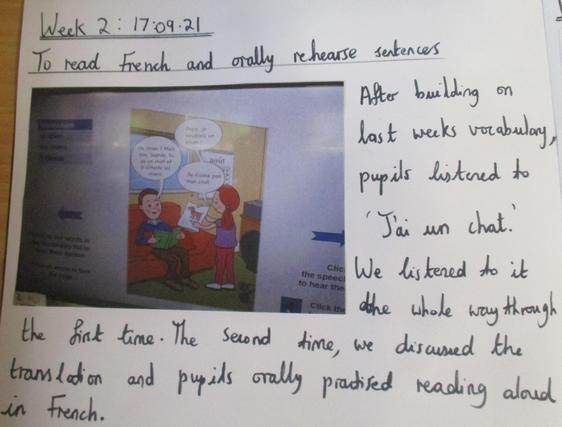 Week 2: 17.09.21
To read French and orally rehearse sentences
After building on
last weeks vocabulary,
pupils listened to
'J'ai un chat.'
We listened to it
the whole way through
the first time. The second time, we discussed the
translation and pupils orally practised reading aloud
in French.
Papa, je
août
Je n'aime pas
mon chat
Click
the speec
to hear the
Click the